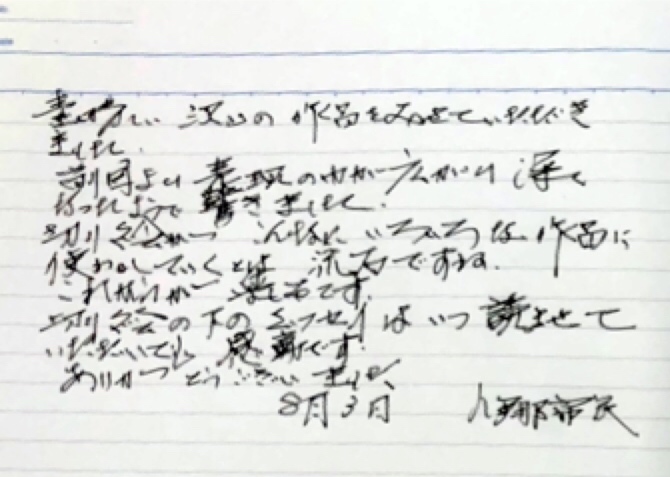 素晴しい 沢山の 作品をみせていただき
ました.
前回より 表現の巾が広がり 深く
なったようで 驚きました.
切り絵が こんなに いろいろな 作品に
流石ですね.
これからが です.
切り絵の下の は いつ 読ませて
いただいても 感動です
ありがとうございました
8月3日 伊那市民